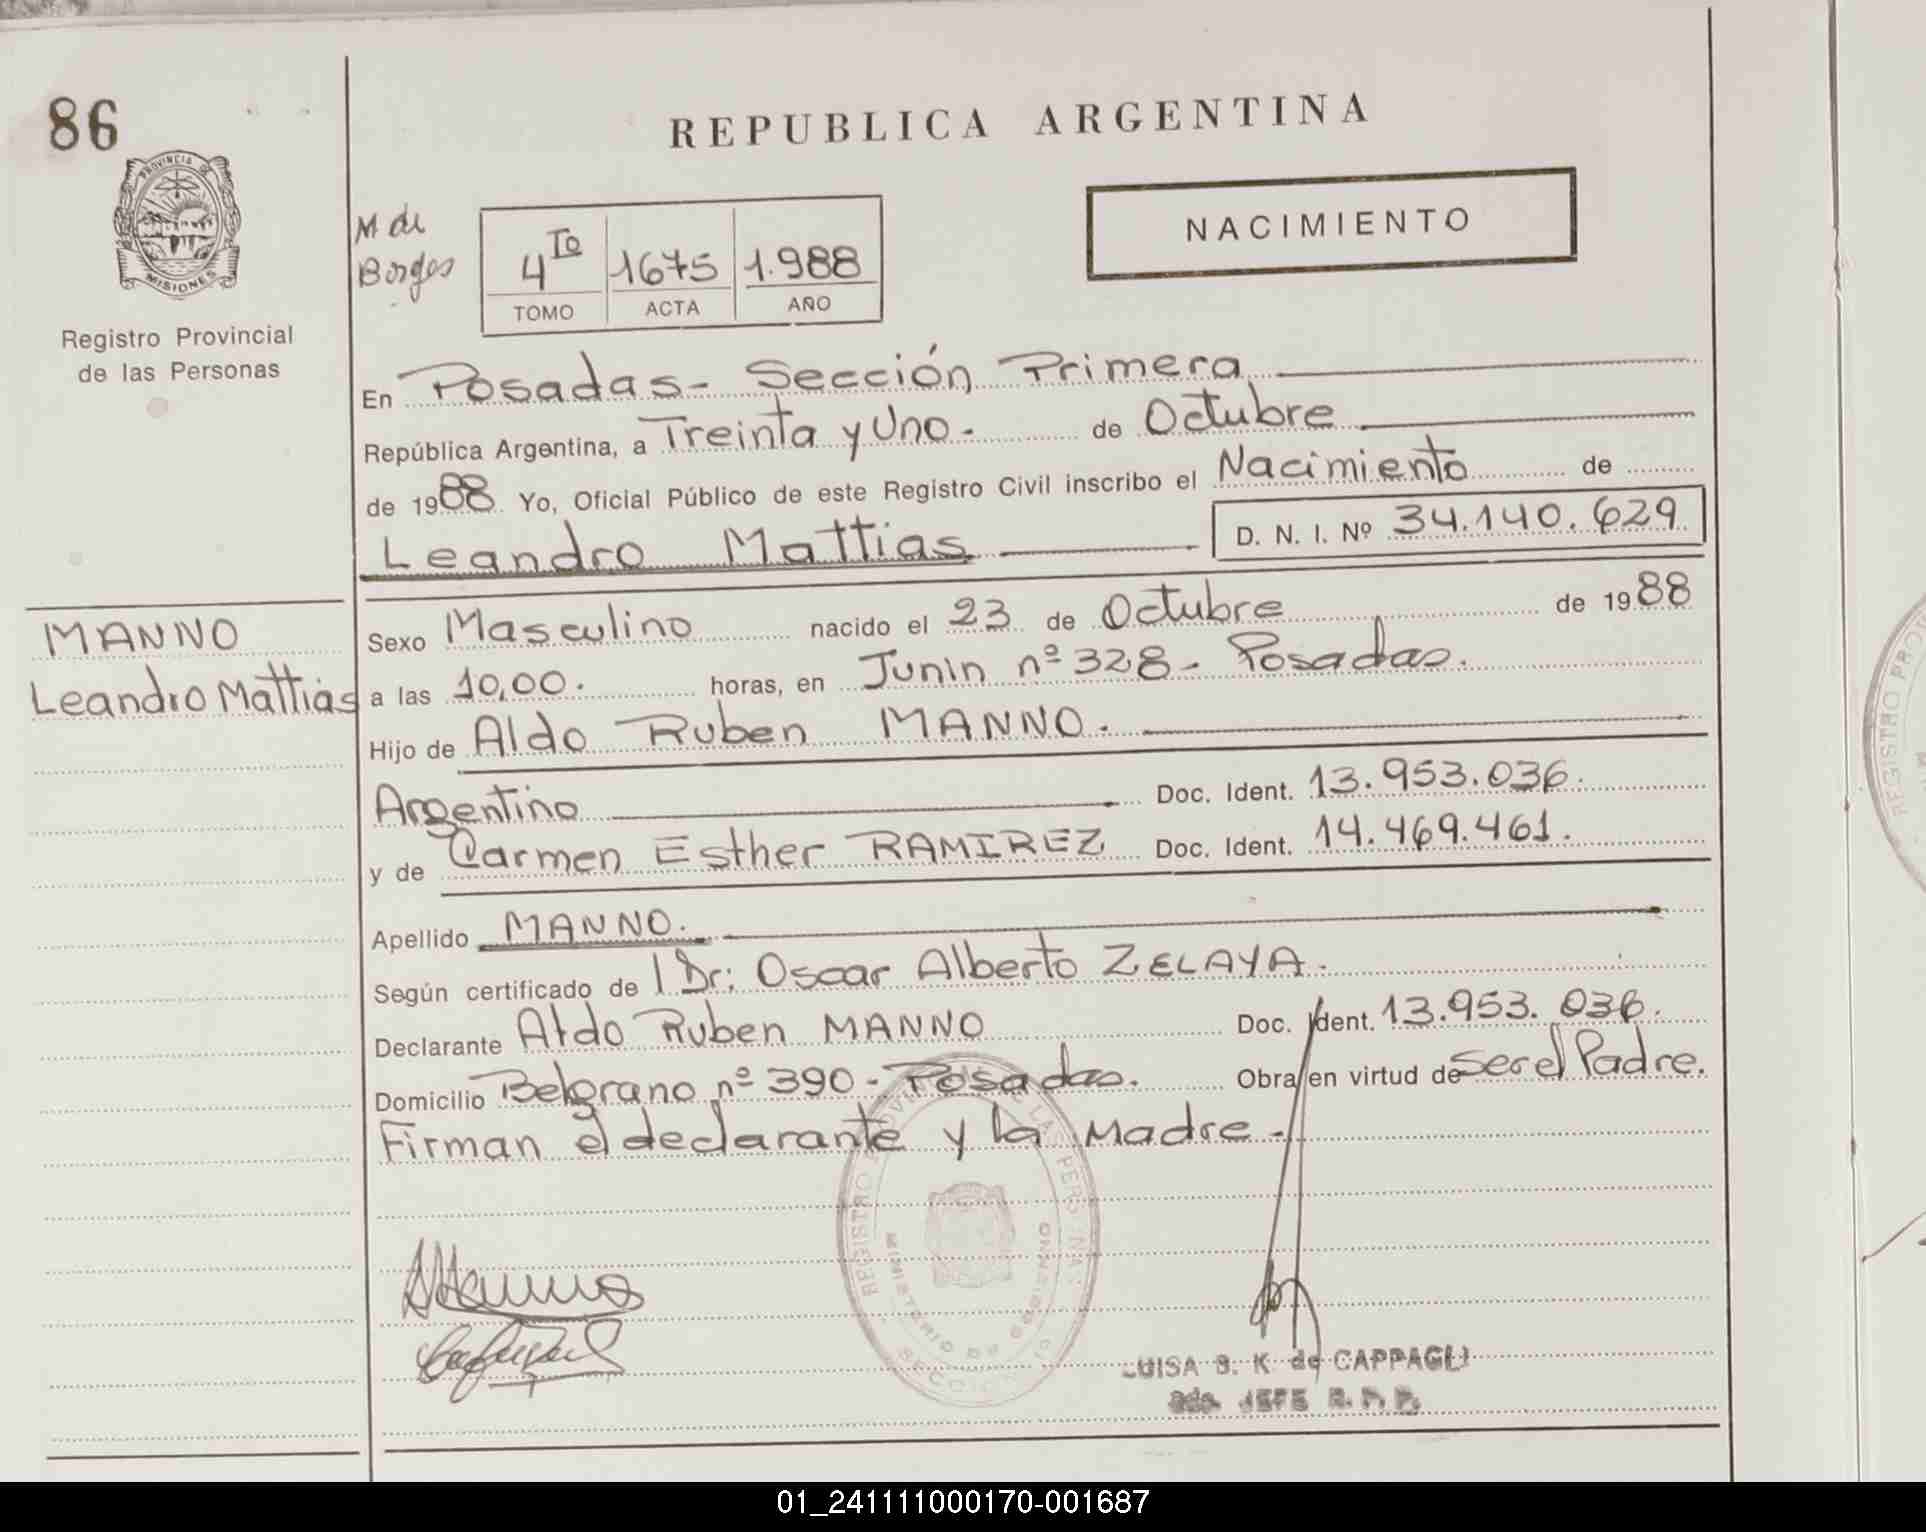 86
PROVINCIA DE
MISIONES
Registro Provincial
de las Personas
MANNO
Leandro Mattias
REPUBLICA ARGENTINA
M de
Borges
4to 1675 1.988
TOMO ACTA AÑO
NACIMIENTO
En Posadas- Sección Primera
República Argentina, a Treinta y Uno. de Octubre
de 1988 Yo, Oficial Público de este Registro Civil inscribo el Nacimiento de
Leandro Mattias D. N. I. Nº 34.140.629
Sexo Masculino nacido el 23 de Octubre de 1988
a las 10,00. horas, en Junin nº 328- Posadas.
Hijo de Aldo Ruben MANNO.
Argentino Doc. Ident. 13.953.036.
y de Carmen Esther RAMIREZ Doc. Ident. 14.469.461.
Apellido MANNO.
Según certificado de l Dr: Oscar Alberto ZELAYA.
Declarante Aldo Ruben MANNO Doc. Ident. 13.953.036.
Domicilio Belgrano nº 390- Posadas. Obra en virtud de ser el Padre.
Firman el declarante y la Madre-
REGISTRO PROVINCIAL DE LAS PERSONAS
MINISTERIO DE GOBIERNO
LUISA B. K. de CAPPAGLI
JEFE
REGISTRO PRO
01_241111000170-001687